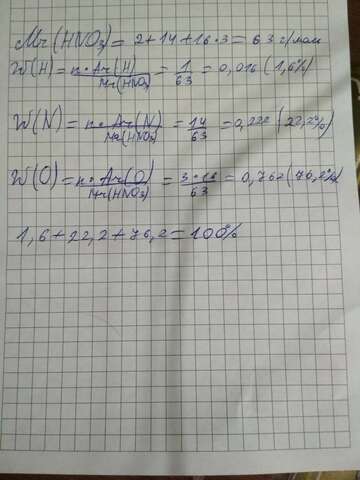 Mr(HNO₃) = 2+14+16·3 = 63 г/моль
W(H) = n·Ar(H)/Mr(HNO₃) = 1/63 = 0,016 (1,6%)
W(N) = n·Ar(N)/Mr(HNO₃) = 14/63 = 0,222 (22,2%)
W(O) = n·Ar(O)/Mr(HNO₃) = 3·16/63 = 0,762 (76,2%)
1,6+22,2+76,2=100%